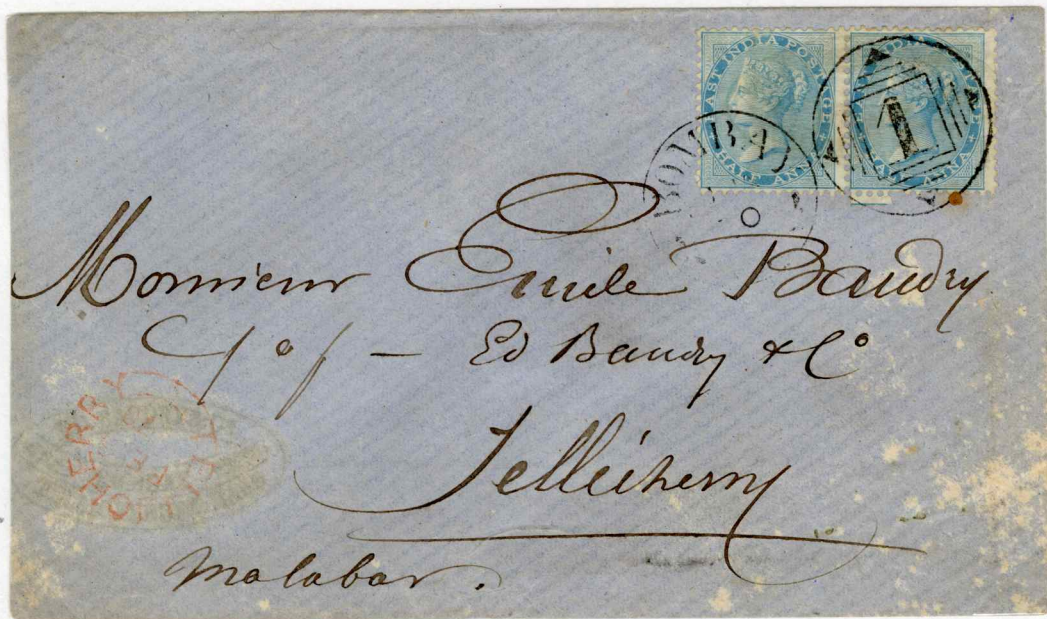 EAST INDIA POSTAGE
HALF ANNA
1
BOMBAY
Monsieur Emile Baudry
C/o/ — Ed Baudry & Co
Tellicherry
TELLICHERRY
Malabar.